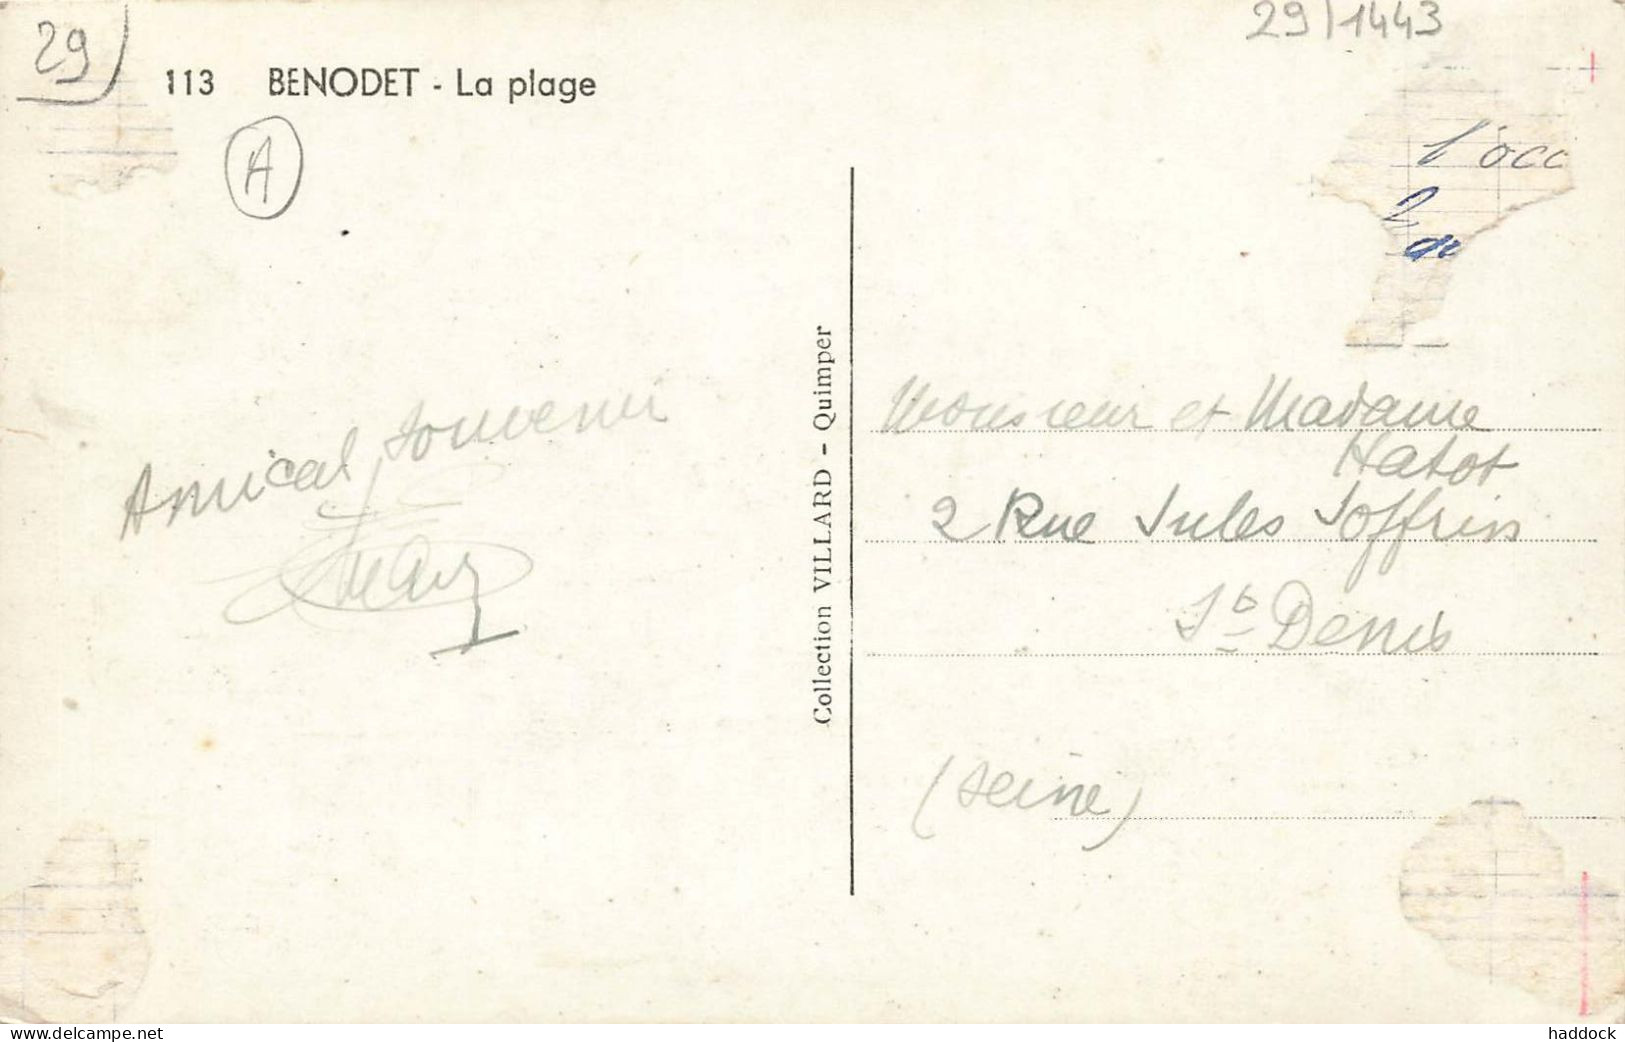 29
29/1443
113 BENODET - La plage
A
l'occ
Amical souvenir
Collection VILLARD - Quimper
Monsieur et Madame
Hatot
2 Rue Jules Joffrin
St Denis
(Seine)
www.delcampe.net
haddock